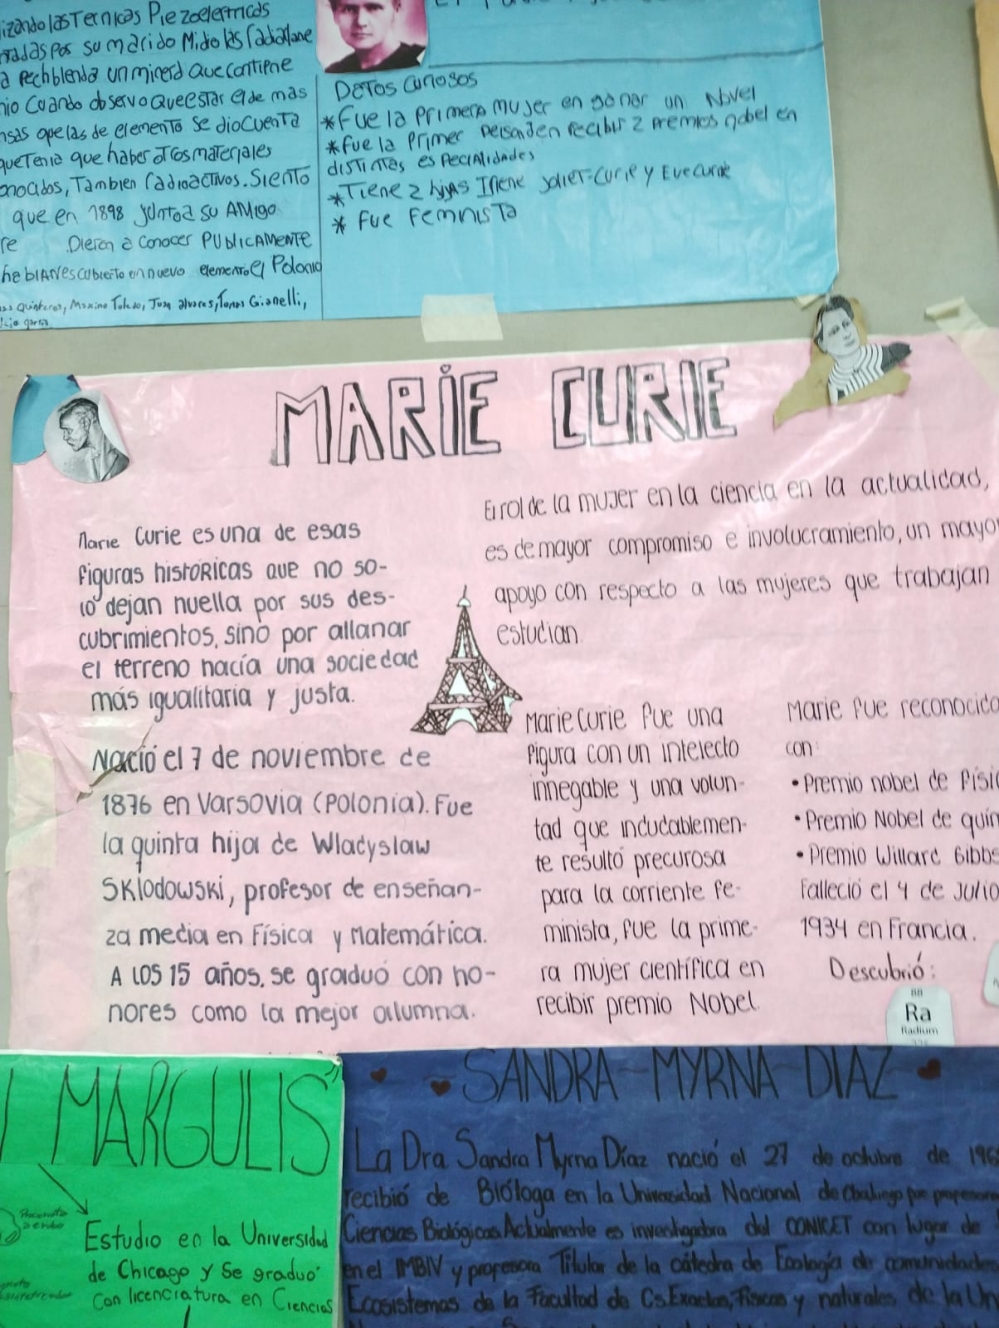 izando las Tecnicas Piezoelectricas
por su marido
a Pechblenda un mineral que contiene
nio cuando observo que estar el de mas
nsas que las de elemento se dio cuenta
que Tenia que haber otros materiales
onocidos, Tambien radioactivos. Siento
que en 1898 junto a su AMigo
re Dieron a conocer PUBLICAMENTE
un nuevo elemento el Polonio
Quinteros, Maximo Toledo, Juan alvares, Tomas Gianelli,
Datos curiosos
* Fue la primera mujer en ganar un Novel
* Fue la primer en recibir 2 premios nobel en
distintas especialidades
* Tiene 2 hijas Irene Joliet-Curie y Eve curie
* Fue Feminista
MARIE CURIE
Marie Curie es una de esas
figuras históricas que no so-
lo dejan huella por sus des-
cubrimientos, sino por allanar
el terreno hacía una sociedad
más igualitaria y justa.
Nació el 7 de noviembre de
1876 en Varsovia (Polonia). Fue
la quinta hija de Wladyslaw
Sklodowski, profesor de enseñan-
za media en Física y Matemática.
A los 15 años, se graduó con ho-
nores como la mejor alumna.
El rol de la mujer en la ciencia en la actualidad,
es de mayor compromiso e involucramiento, un mayor
apoyo con respecto a las mujeres que trabajan
estudian.
Marie Curie fue una
figura con un intelecto
innegable y una volun-
tad que indudablemen-
te resultó precurosa
para la corriente fe-
minista, fue la prime-
ra mujer científica en
recibir premio Nobel.
Marie fue reconocida
con:
• Premio nobel de Físic
• Premio Nobel de quím
• Premio Willard Gibbs
Falleció el 4 de Julio
1934 en Francia.
Descubrió:
88
Ra
Radium
MARGULIS"
Estudio en la Universidad
de Chicago y se graduó
con licenciatura en Ciencias
SANDRA-MYRNA-DIAZ
La Dra Sandra Myrna Díaz nació el 27 de octubre de 196
recibió de Bióloga en la Universidad Nacional de
Ciencias Biológicas. Actualmente es investigadora del CONICET con lugar de
en el IMBIV y profesora Titular de la cátedra de Ecología de comunidades
Ecosistemas de la Facultad de Cs. Exactas, Físicas y naturales de la Un